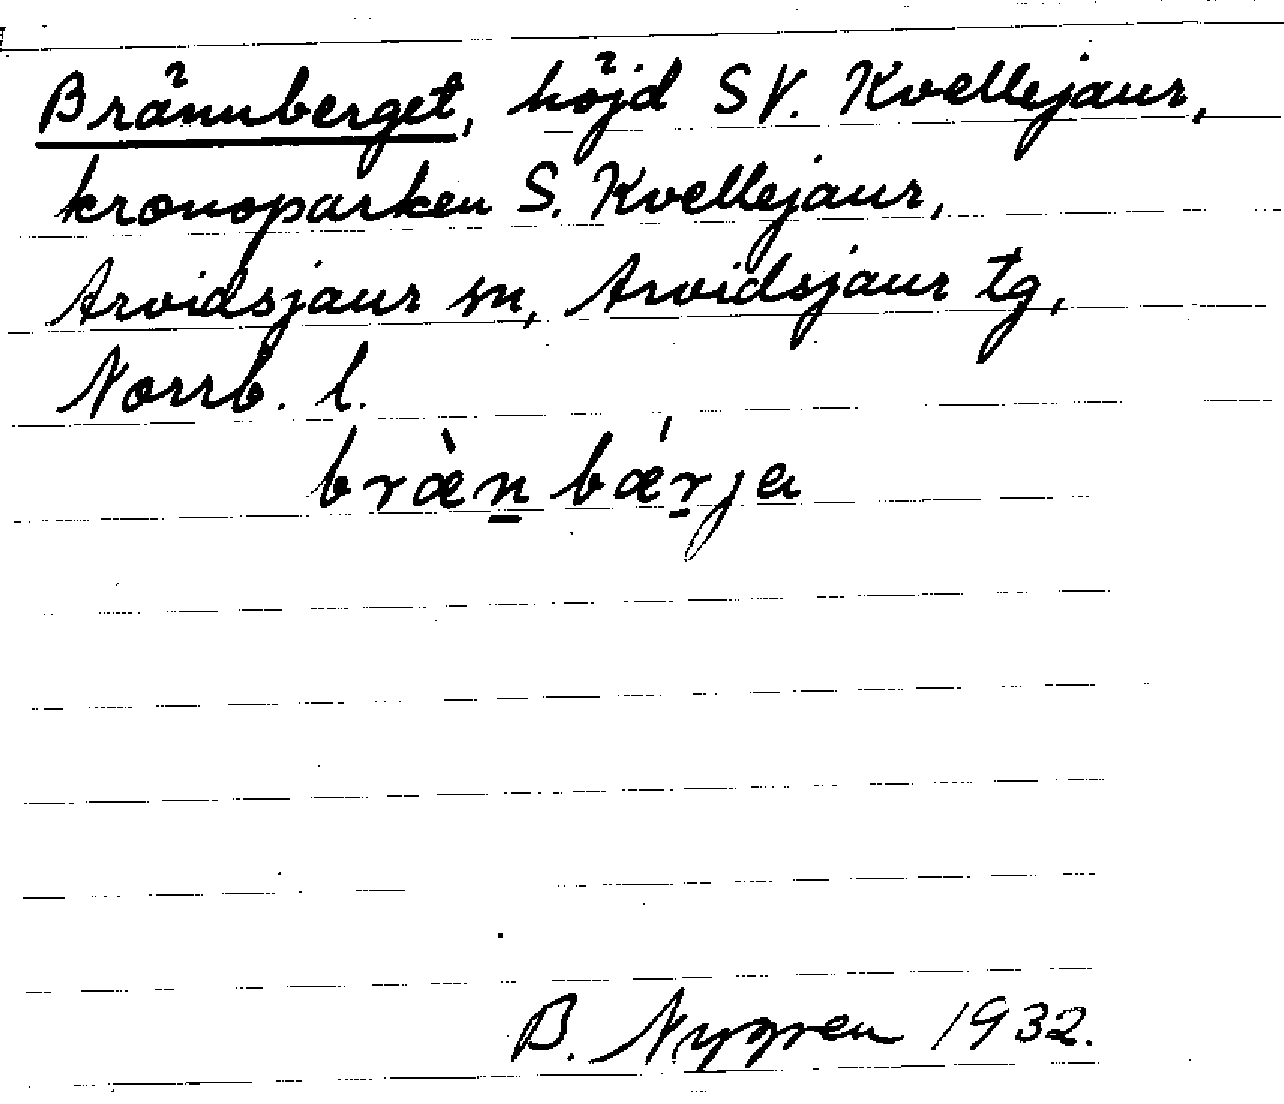 Brännberget, höjd SV. Kvellejaur,
kronoparken S. Kvellejaur,
Arvidsjaur sn, Arvidsjaur tg,
Norrb. l.
bræ̀n̲ bǽr̲ja
B. Nygren 1932.